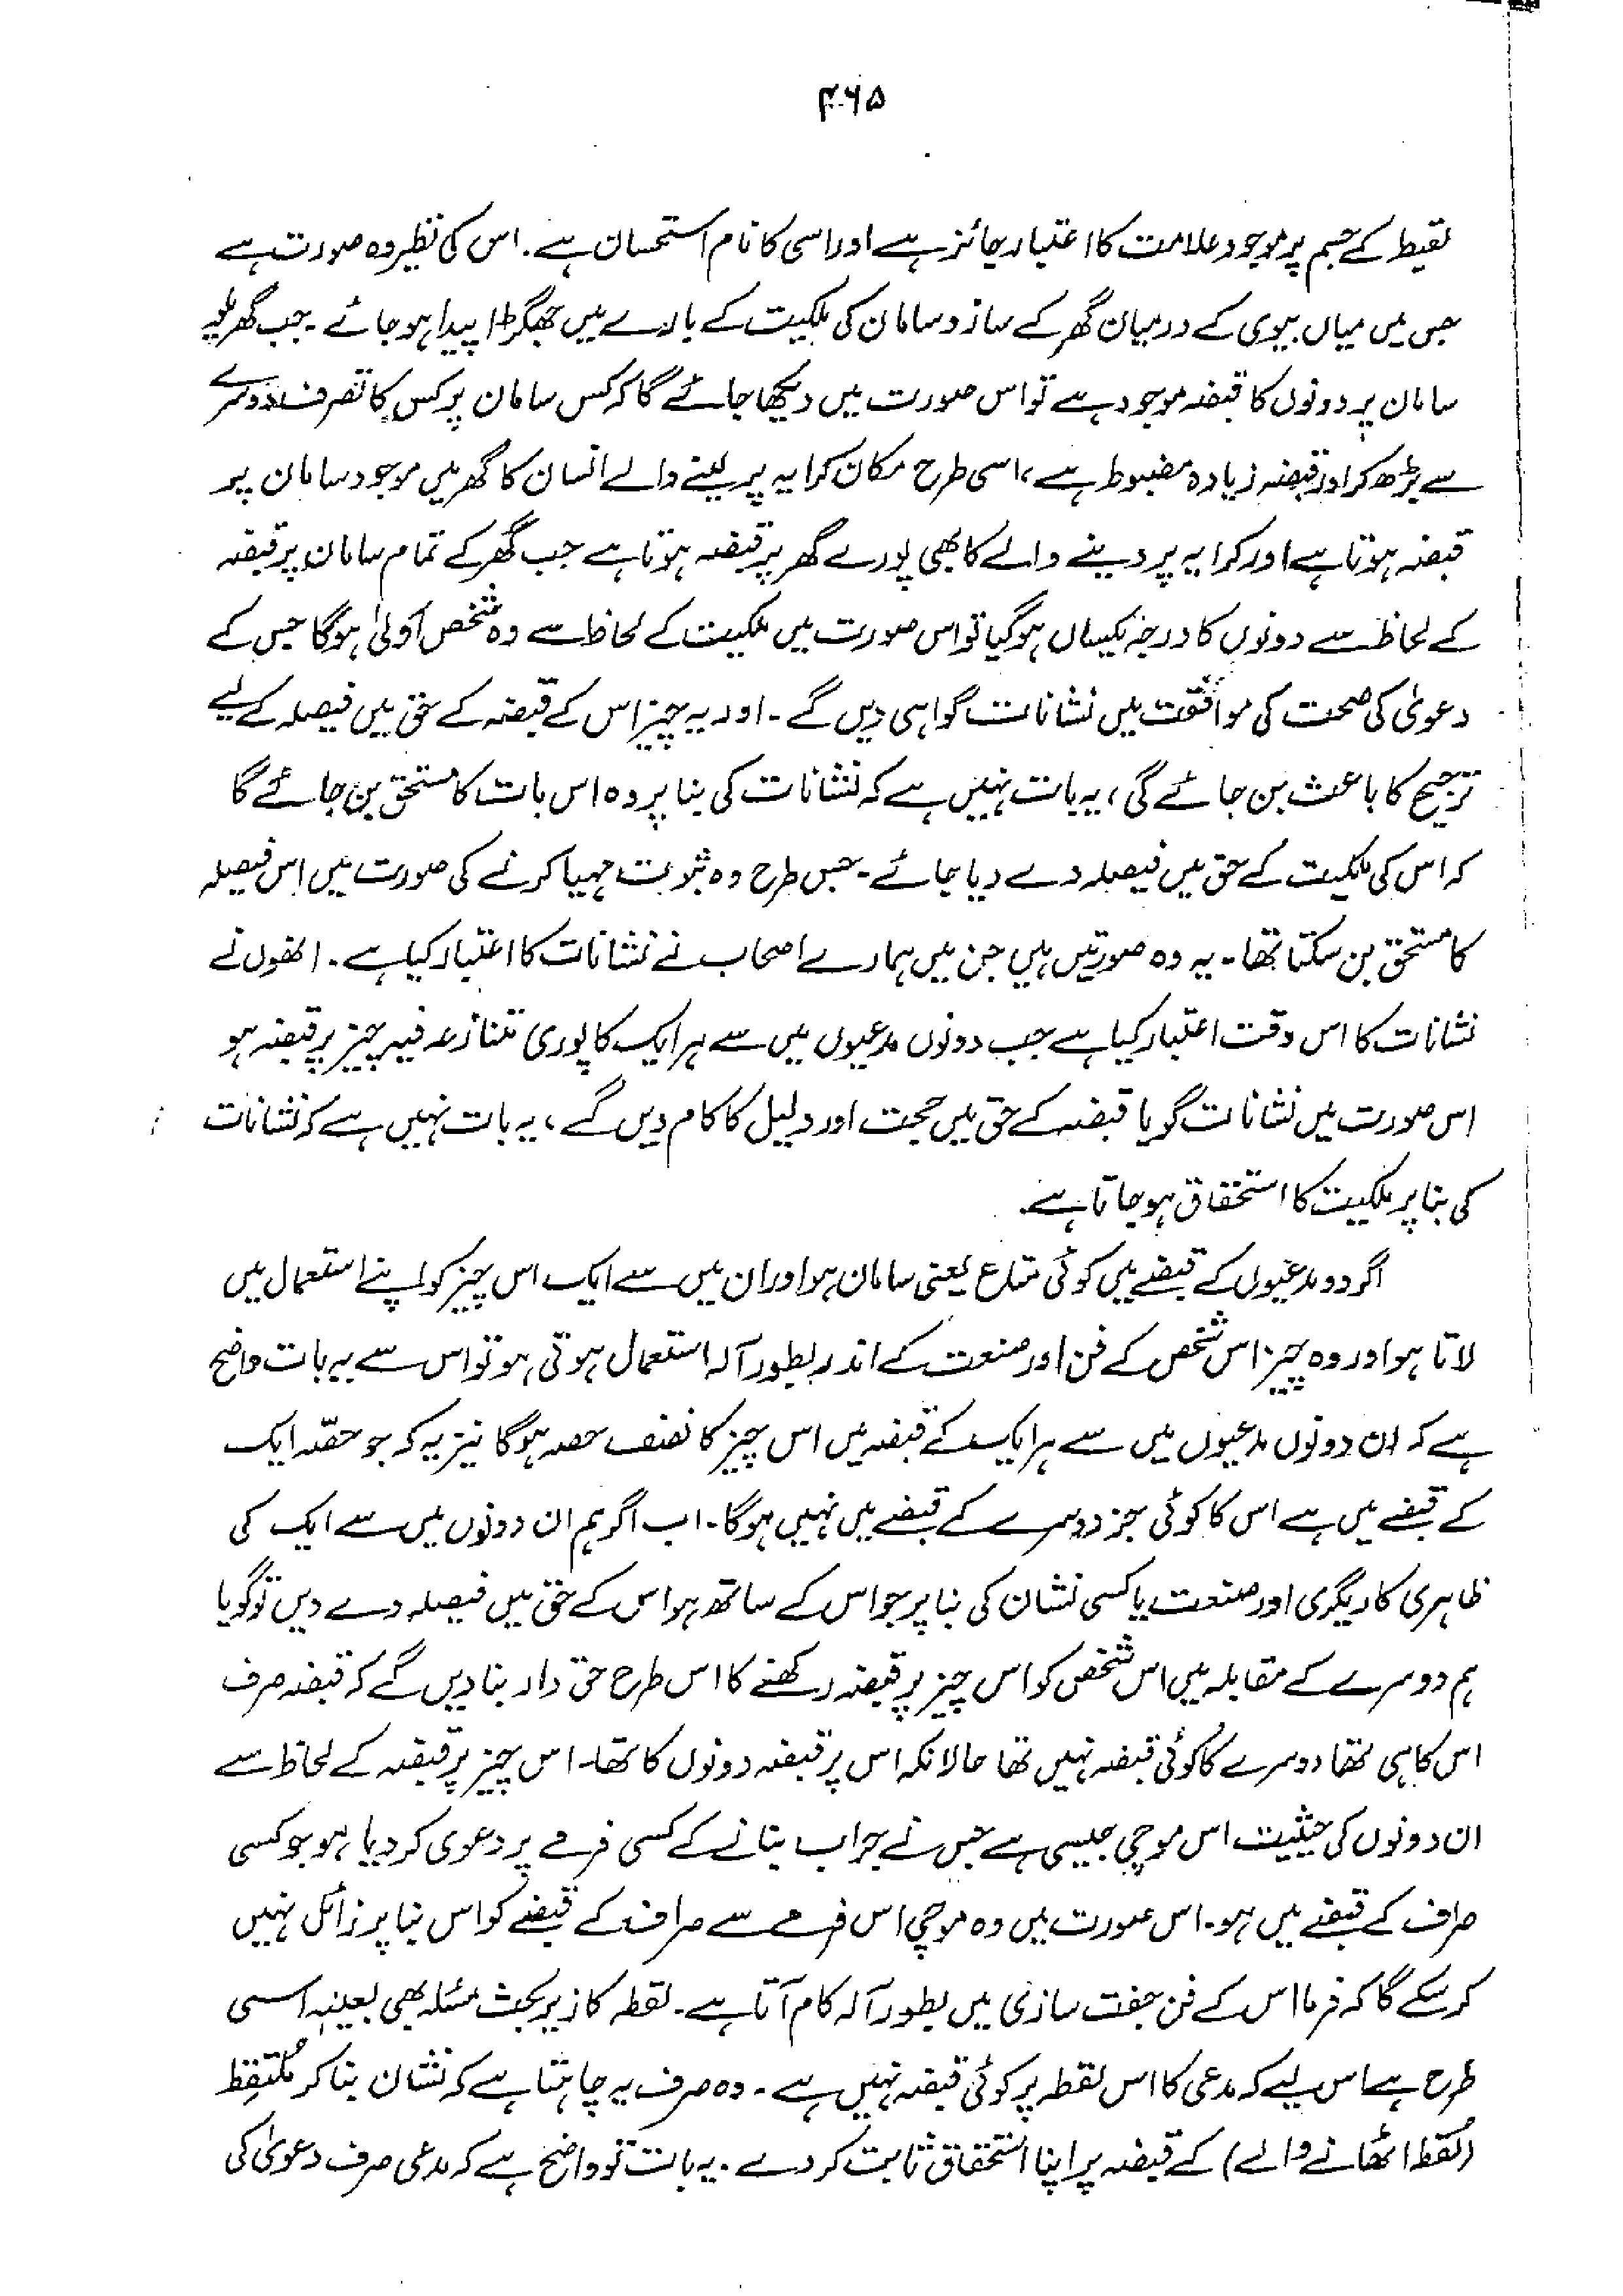 ۴۶۵
لقیط کے جسم پر موجود علامت کا اعتبار جائز ہے اور اسی کا نام استحسان ہے۔ اس کی نظیر وہ صورت ہے
جس میں میاں بیوی کے درمیان گھر کے ساز و سامان کی ملکیت کے بارے میں جھگڑا پیدا ہو جائے۔ جب گھریلو
سامان پر دونوں کا قبضہ موجود ہے تو اس صورت میں دیکھا جائے گا کہ کس سامان پر کس کا تصرف دوسرے
سے بڑھ کر اور قبضہ زیادہ مضبوط ہے، اسی طرح مکان کرایہ پر لینے والے انسان کا گھر میں موجود سامان پر
قبضہ ہوتا ہے اور کرایہ پر دینے والے کا بھی پورے گھر پر قبضہ ہوتا ہے جب گھر کے تمام سامان پر قبضہ
کے لحاظ سے دونوں کا درجہ یکساں ہو گیا تو اس صورت میں ملکیت کے لحاظ سے وہ شخص اَولیٰ ہوگا جس کے
دعویٰ کی صحت کی موافقت میں نشانات گواہی دیں گے۔ اور یہ چیز اس کے قبضہ کے حق میں فیصلہ کے لیے
ترجیح کا باعث بن جائے گی، یہ بات نہیں ہے کہ نشانات کی بنا پر وہ اس بات کا مستحق بن جائے گا
کہ اس کی ملکیت کے حق میں فیصلہ دے دیا جائے۔ جس طرح وہ ثبوت مہیا کرنے کی صورت میں اس فیصلہ
کا مستحق بن سکتا تھا۔ یہ وہ صورتیں ہیں جن میں ہمارے اصحاب نے نشانات کا اعتبار کیا ہے۔ انھوں نے
نشانات کا اس وقت اعتبار کیا ہے جب دونوں مدعیوں میں سے ہر ایک کا پوری متنازعہ فیہ چیز پر قبضہ ہو
اس صورت میں نشانات گویا قبضہ کے حق میں حجت اور دلیل کا کام دیں گے، یہ بات نہیں ہے کہ نشانات
کی بنا پر ملکیت کا استحقاق ہو جاتا ہے۔
اگر دو مدعیوں کے قبضے میں کوئی متاع یعنی سامان ہو اور ان میں سے ایک اس چیز کو اپنے استعمال میں
لاتا ہو اور وہ چیز اس شخص کے فن اور صنعت کے اندر بطور آلہ استعمال ہوتی ہو تو اس سے یہ بات واضح
ہے کہ ان دونوں مدعیوں میں سے ہر ایک کے قبضہ میں اس چیز کا نصف حصہ ہوگا نیز یہ کہ جو حصّہ ایک
کے قبضے میں ہے اس کا کوئی جز دوسرے کے قبضے میں نہیں ہوگا۔ اب اگر ہم ان دونوں میں سے ایک کی
ظاہری کاریگری اور صنعت یا کسی نشان کی بنا پر جو اس کے ساتھ ہو اس کے حق میں فیصلہ دے دیں تو گویا
ہم دوسرے کے مقابلہ میں اس شخص کو اس چیز پر قبضہ رکھنے کا اس طرح حق دار بنا دیں گے کہ قبضہ صرف
اس کا ہی تھا دوسرے کا کوئی قبضہ نہیں تھا حالانکہ اس پر قبضہ دونوں کا تھا۔ اس چیز پر قبضہ کے لحاظ سے
ان دونوں کی حیثیت اس موچی جیسی ہے جس نے جراب بنانے کے کسی فرمے پر دعوی کر دیا ہو جو کسی
صراف کے قبضے میں ہو۔ اس صورت میں وہ موچی اس فرمے سے صراف کے قبضے کو اس بنا پر زائل نہیں
کر سکے گا کہ فرما اس کے فن جفت سازی میں بطور آلہ کام آتا ہے۔ لقطہ کا زیر بحث مسئلہ بھی بعینہٖ اسی
طرح ہے اس لیے کہ مدعی کا اس لقطہ پر کوئی قبضہ نہیں ہے۔ وہ صرف یہ چاہتا ہے کہ نشان بتا کر مُلتقِط
(لُقطہ اٹھانے والے) کے قبضہ پر اپنا استحقاق ثابت کر دے۔ یہ بات تو واضح ہے کہ مدعی صرف دعویٰ کی